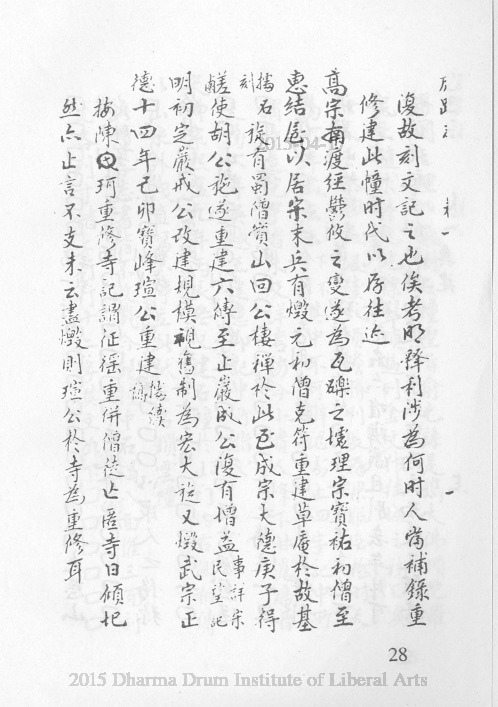 復故刻文記之也俟考明釋利涉為何時人當補錄重
修建此幢時代以存往迹
高宗南渡經鬱攸之變遂為瓦礫之墟理宗寶祐初僧至
惠結居以居宋末兵有燬元初僧克符重建草庵於故基
刻
石旋有蜀僧寶山回公棲禪於此迄成宗大德庚子得
鹺使胡公施遂重建六傳至止巖成公復有增益事詳宋民望記
明初定巖戒公改建規模視舊制為宏大旋又燬武宗正
德十四年己卯寶峰瑄公重建
按陳珂重修寺記謂征徭重併僧徒亡匿寺日傾圮
然亦止言不支未云盡燬則瑄公於寺為重修耳
一
28
2015-04-
2015 Dharma Drum Institute of Liberal Arts